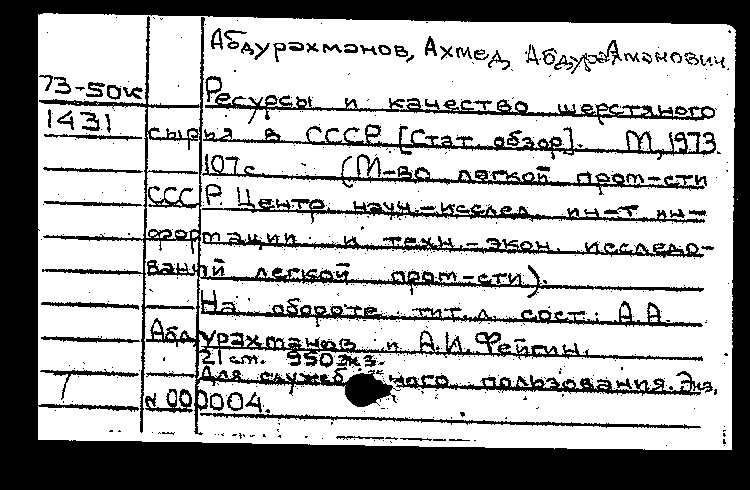 Абдурахманов, Ахмед Абдурахманович
73-50к
Ресурсы и качество шерстяного
1431
сырья в СССР [Стат. обзор]. М, 1973
107с. (М-во легкой пром-сти
СССР. Центр. науч.-исслед. ин-т ин-
формации и техн.-экон. исследо-
ваний легкой пром-сти).
На обороте тит. л. сост.: А.А.
Абдурахманов и А.И. Фейгин.
21 см. 950 экз.
Для служебного пользования. Экз.
N 000004.